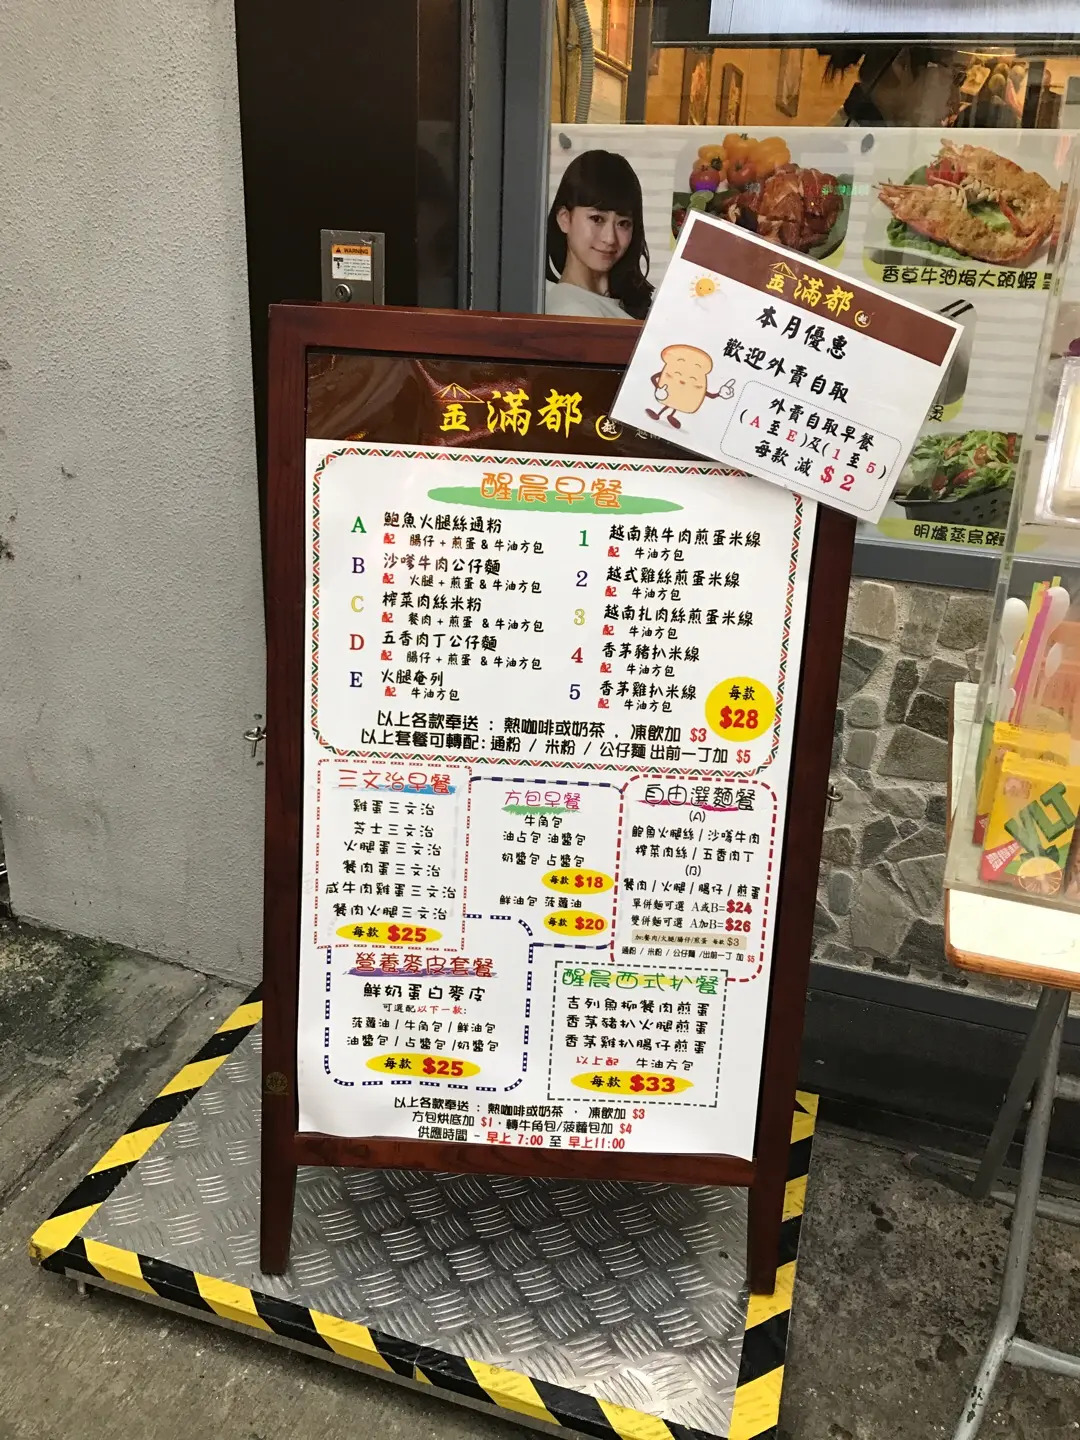 WARNING
香草牛油焗大頭蝦
金滿都 越
本月優惠
歡迎外賣自取
外賣自取早餐
(A至E)及(1至5)
每款 減 $2
金滿都 越
醒晨早餐
A 鮑魚火腿絲通粉
配 腸仔 + 煎蛋 & 牛油方包
B 沙嗲牛肉公仔麵
配 火腿 + 煎蛋 & 牛油方包
C 榨菜肉絲米粉
配 餐肉 + 煎蛋 & 牛油方包
D 五香肉丁公仔麵
配 腸仔 + 煎蛋 & 牛油方包
E 火腿奄列
配 牛油方包
1 越南熟牛肉煎蛋米線
配 牛油方包
2 越式雞絲煎蛋米線
配 牛油方包
3 越南扎肉絲煎蛋米線
配 牛油方包
4 香茅豬扒米線
配 牛油方包
5 香茅雞扒米線
配 牛油方包
每款
$28
以上各款奉送 : 熱咖啡或奶茶 , 凍飲加 $3
以上套餐可轉配: 通粉 / 米粉 / 公仔麵 出前一丁加 $5
三文治早餐
雞蛋三文治
芝士三文治
火腿蛋三文治
餐肉蛋三文治
咸牛肉雞蛋三文治
餐肉火腿三文治
每款 $25
方包早餐
牛角包
油占包 油醬包
奶醬包 占醬包
每款 $18
鮮油包 菠蘿油
每款 $20
自由選麵餐
(A)
鮑魚火腿絲 / 沙嗲牛肉
榨菜肉絲 / 五香肉丁
(B)
餐肉 / 火腿 / 腸仔 / 煎蛋
單併麵可選 A或B= $24
雙併麵可選 A加B= $26
加:餐肉/火腿/腸仔/煎蛋 每款 $3
通粉 / 米粉 / 公仔麵 /出前一丁 加 $5
營養麥皮套餐
鮮奶蛋白麥皮
可選配以下一款:
菠蘿油 / 牛角包 / 鮮油包
油醬包 / 占醬包 /奶醬包
每款 $25
醒晨西式扒餐
吉列魚柳餐肉煎蛋
香茅豬扒火腿煎蛋
香茅雞扒腸仔煎蛋
以上配 牛油方包
每款 $33
以上各款奉送 : 熱咖啡或奶茶 , 凍飲加 $3
方包烘底加 $1 , 轉牛角包/菠蘿包加 $4
供應時間 - 早上 7:00 至 早上11:00
VLT